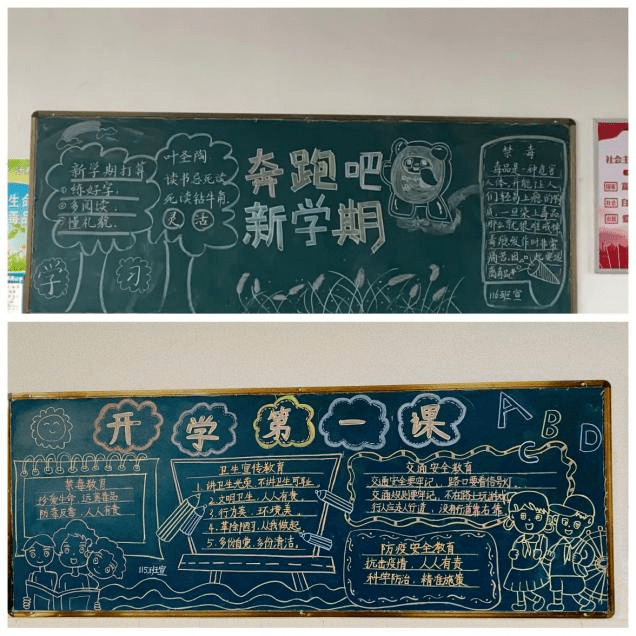 新学期打算
①练好字.
②多阅读.
③懂礼貌.
学 习
叶圣陶
读书忌死读
死读钻牛角.
灵活
奔跑吧
新学期
禁毒
毒品是一种危害
人体,并能让人
们轻易上瘾的物
质,一旦染上毒品
116班宣
社会主
开学第一课
A B C D
禁毒教育
珍爱生命,远离毒品
防毒反毒,人人有责
卫生宣传教育
1.讲卫生光荣,不讲卫生可耻。
2.文明卫生,人人有责
3.行为美,环境美。
4.革除陋习,从我做起
5.多份自觉,多份清洁。
115班宣
交通安全教育
交通安全要牢记,路口要看信号灯
交通规则要牢记,不在路上玩游戏
行人应走人行道,没有行道靠右靠
防疫安全教育
抗击疫情,人人有责
科学防治,精准施策